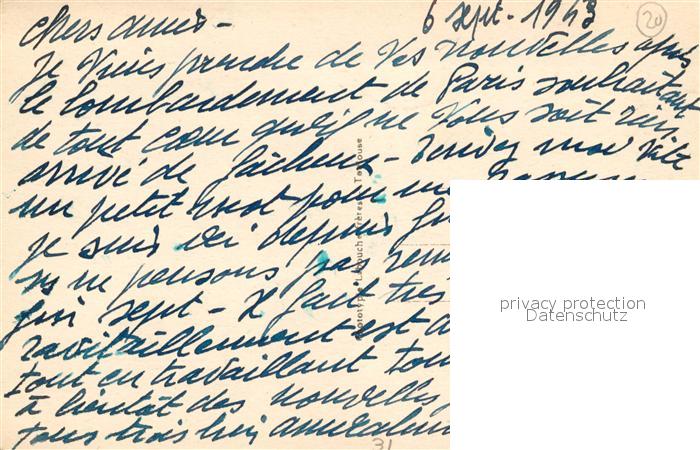 6 sept. 1943
20
Chers amis -
Je viens prendre de vos nouvelles après
le bombardement de Paris souhaitant
de tout cœur qu'il ne vous soit rien
arrivé de fâcheux - Rendez moi vite
un petit mot pour me
je suis ici depuis
ns ne pensons pas
fin sept - Il fait très
ravitaillement est
tout en travaillant
à bientôt des nouvelles
tous trois bien amicalement
Phototypie Labouche Frères Toulouse
privacy protection
Datenschutz
31